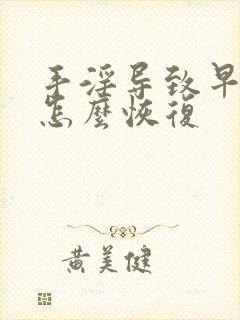 手淫导致早
怎麼恢復
黄美健